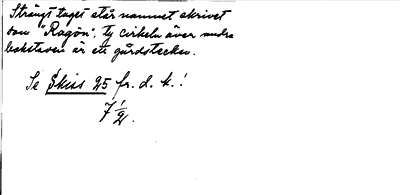 Strängt taget står namnet skrivet
som "Ragon", ty cirkeln över andra
bokstaven är ett gårdstecken.
Se Skiss 25 fr. d. k.!
7 1/2.